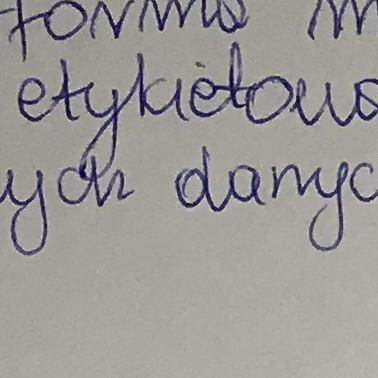 forma m
etykietowa
ych danyc